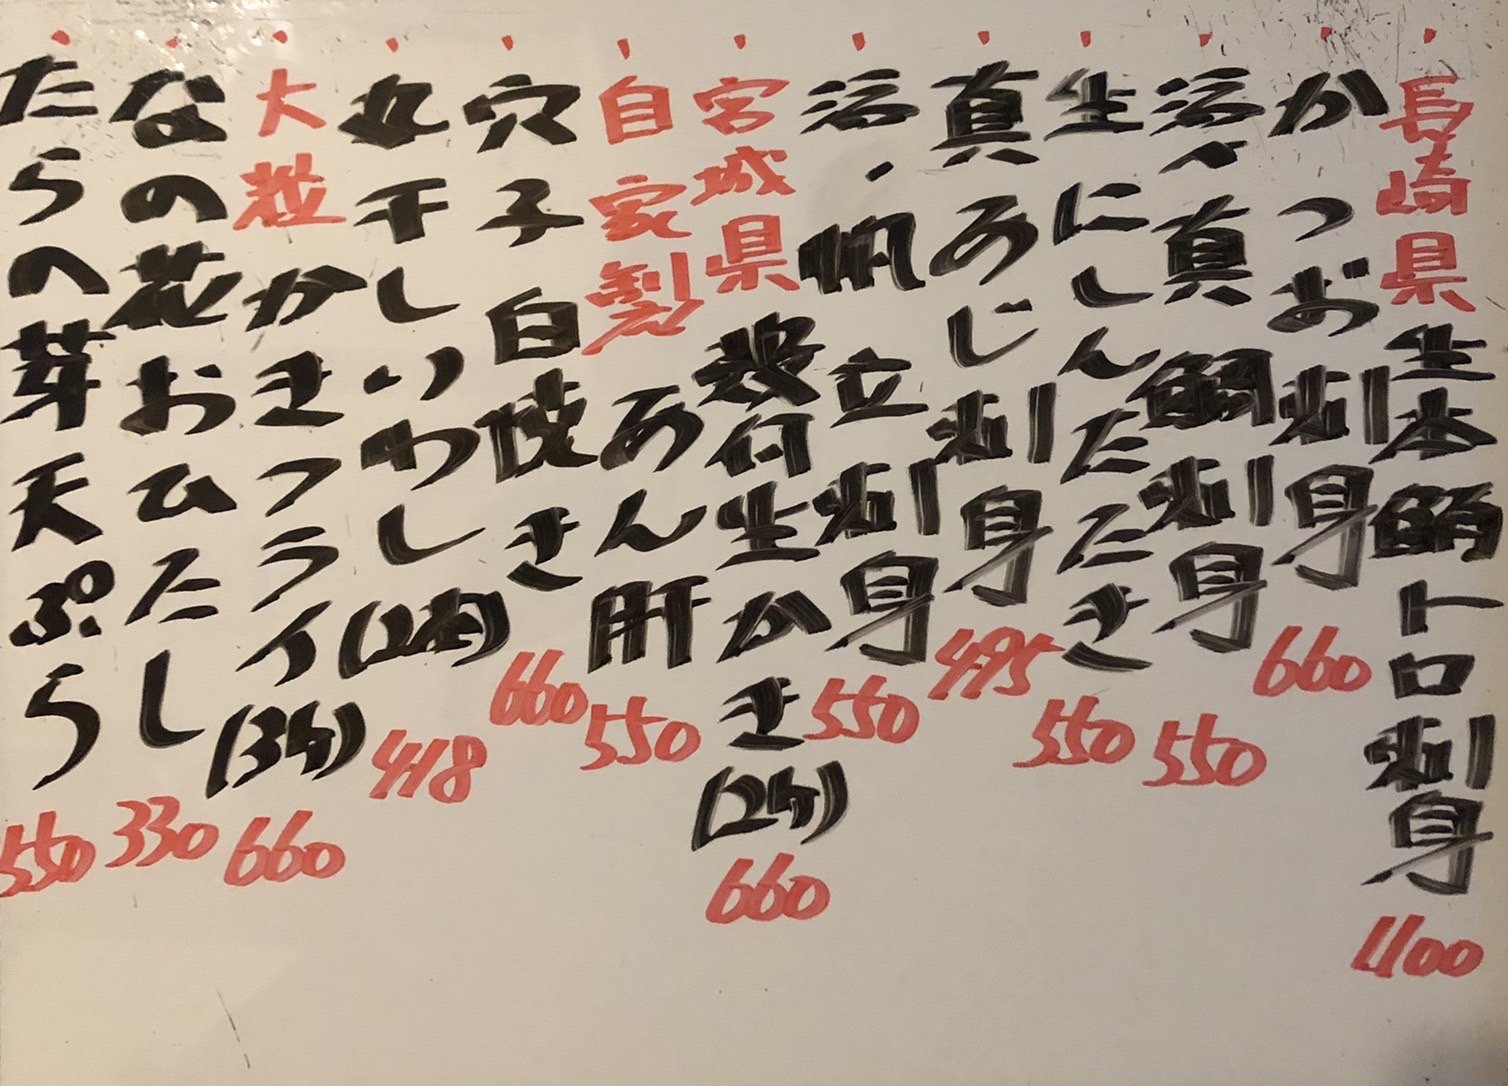 長崎県生本鮪トロ刺身 1100
かつお刺身 660
活〆真鯛刺身 550
生にしんたたき 550
真あじ刺身 495
活・帆立刺身 550
宮城県殻付生かき(2ケ) 660
自家製あん肝 550
穴子白焼き 660
丸干しいわし(2本) 418
大粒かきフライ(3ケ) 660
なの花おひたし 330
たらの芽天ぷら 550